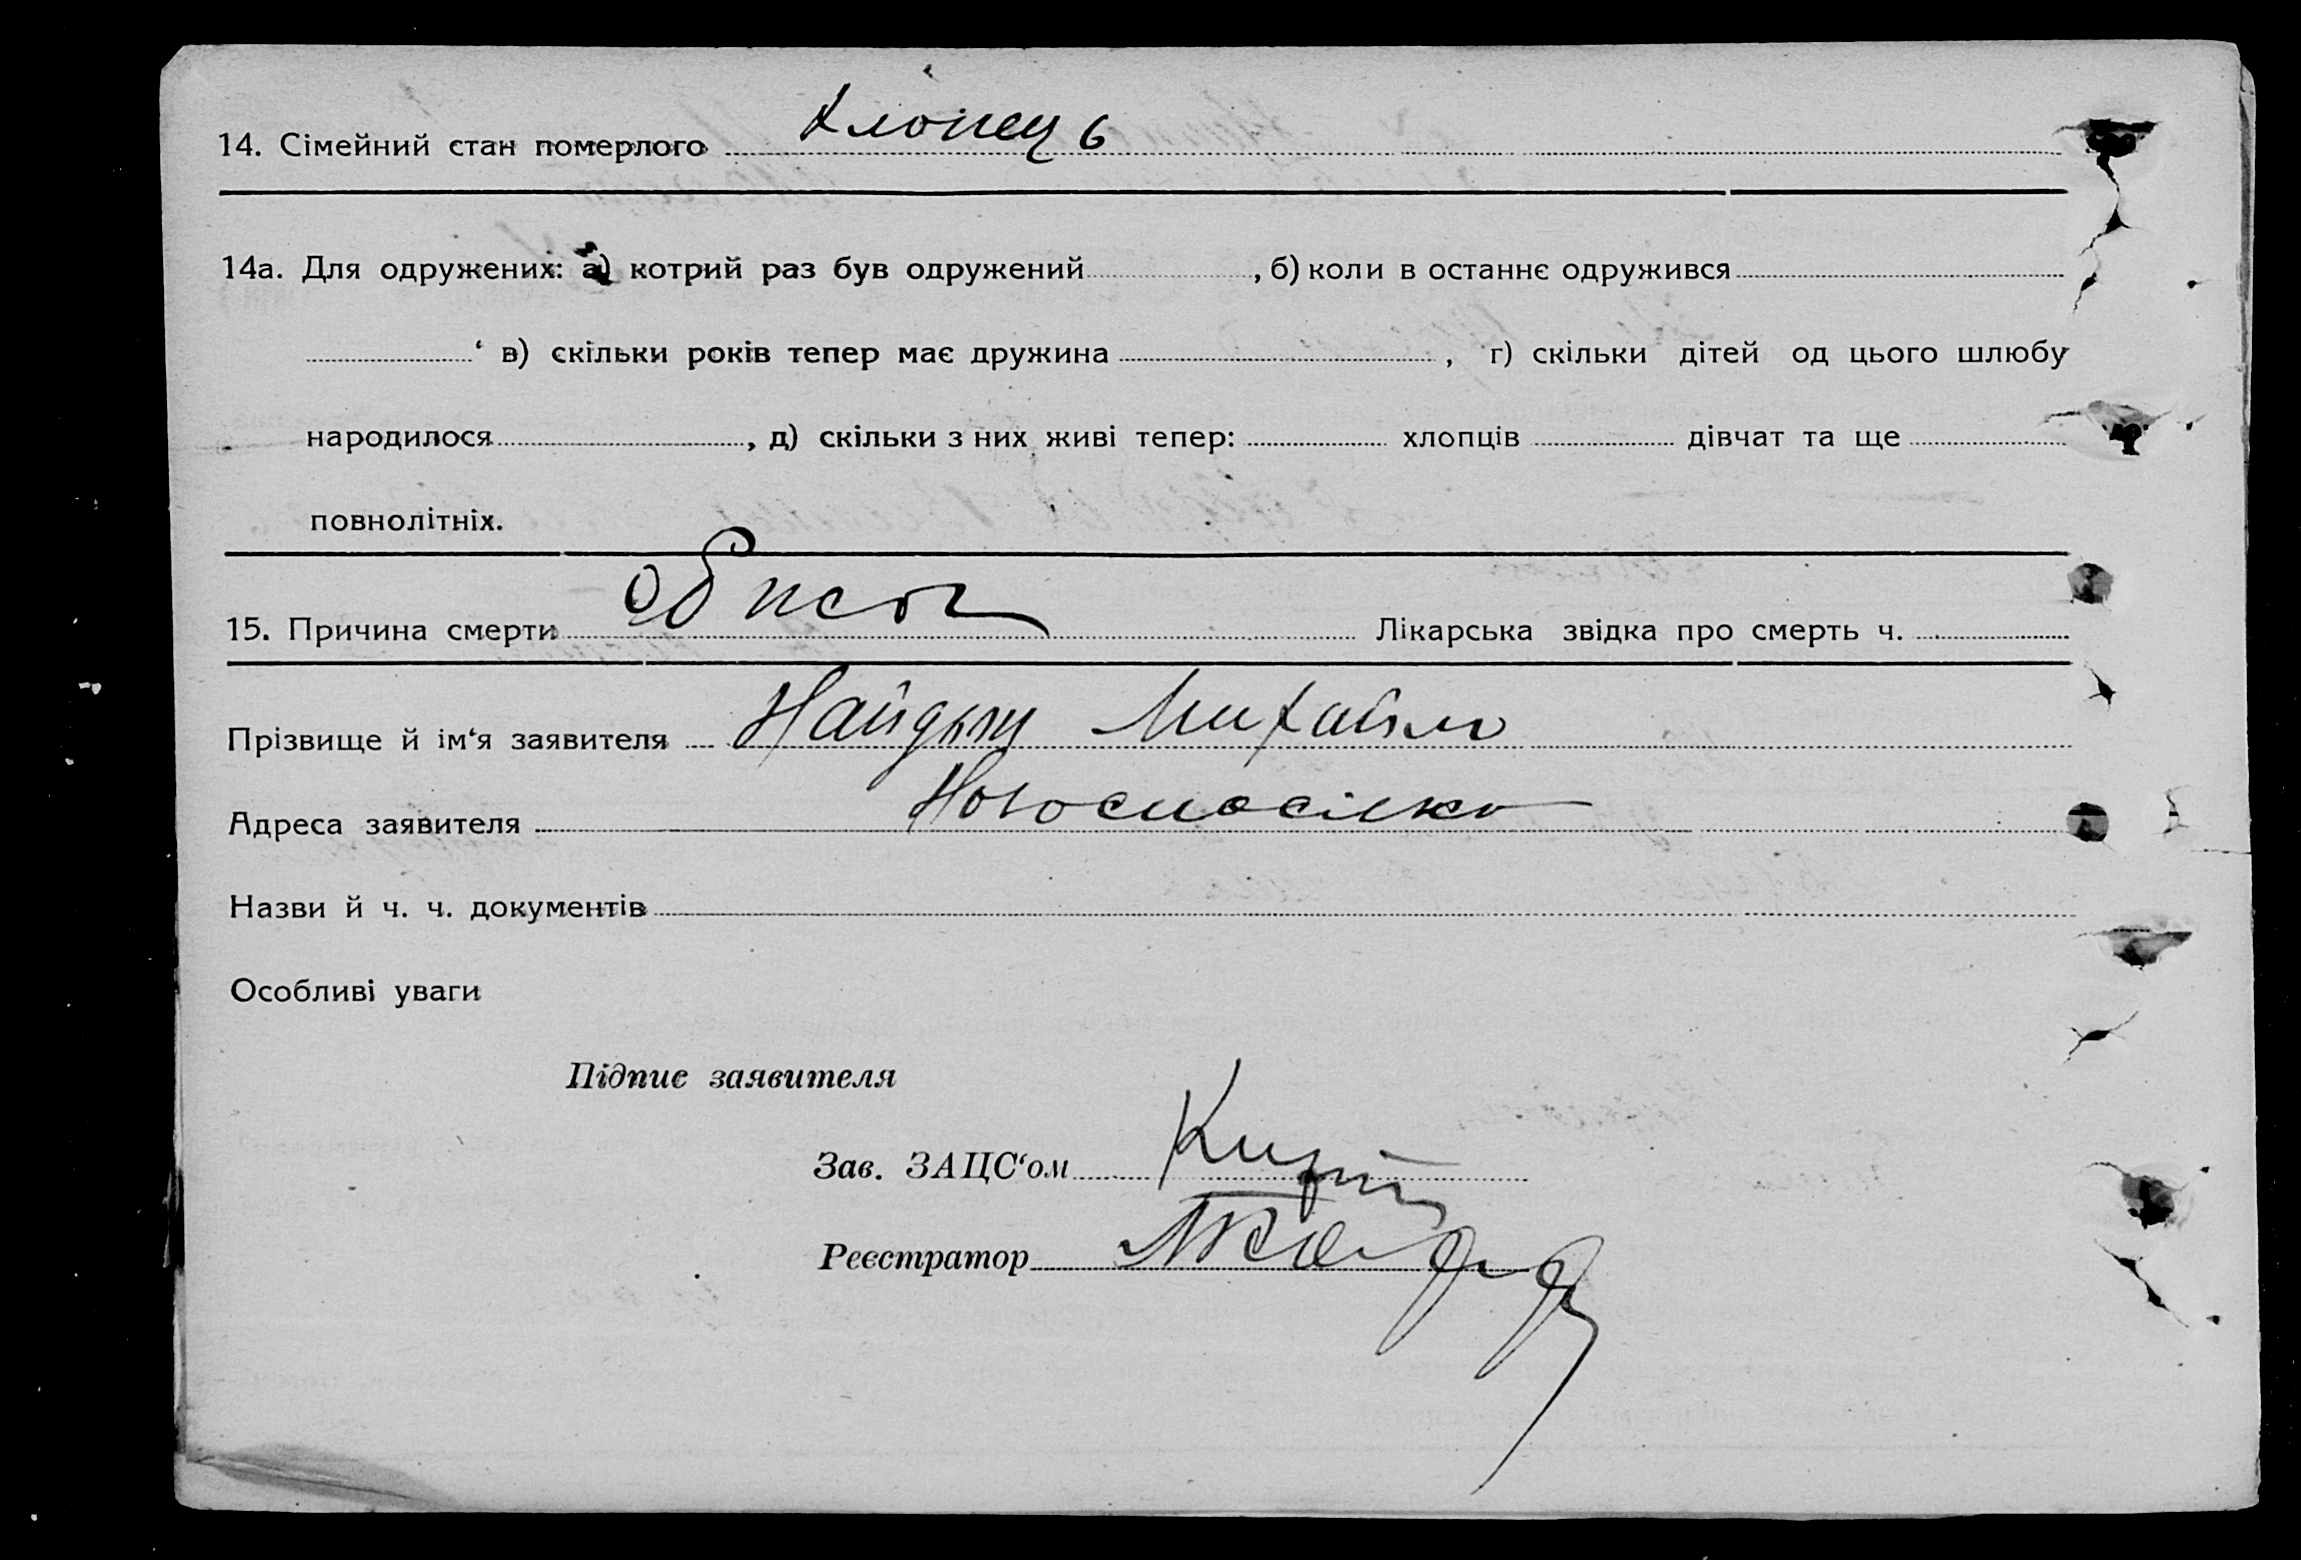 14. Сімейний стан померлого Хлопець
14а. Для одружених: а) котрий раз був одружений , б) коли в останнє одружився
‘ в) скільки років тепер має дружина , г) скільки дітей од цього шлюбу
народилося , д) скільки з них живі тепер: хлопців дівчат та ще
повнолітніх.
15. Причина смерти Лікарська звідка про смерть ч.
Прізвище й ім‘я заявителя Найдын Михайло
Адреса заявителя
Назви й ч. ч. документів
Особливі уваги
Підпис заявителя
Зав. ЗАЦС‘ом
Реєстратор